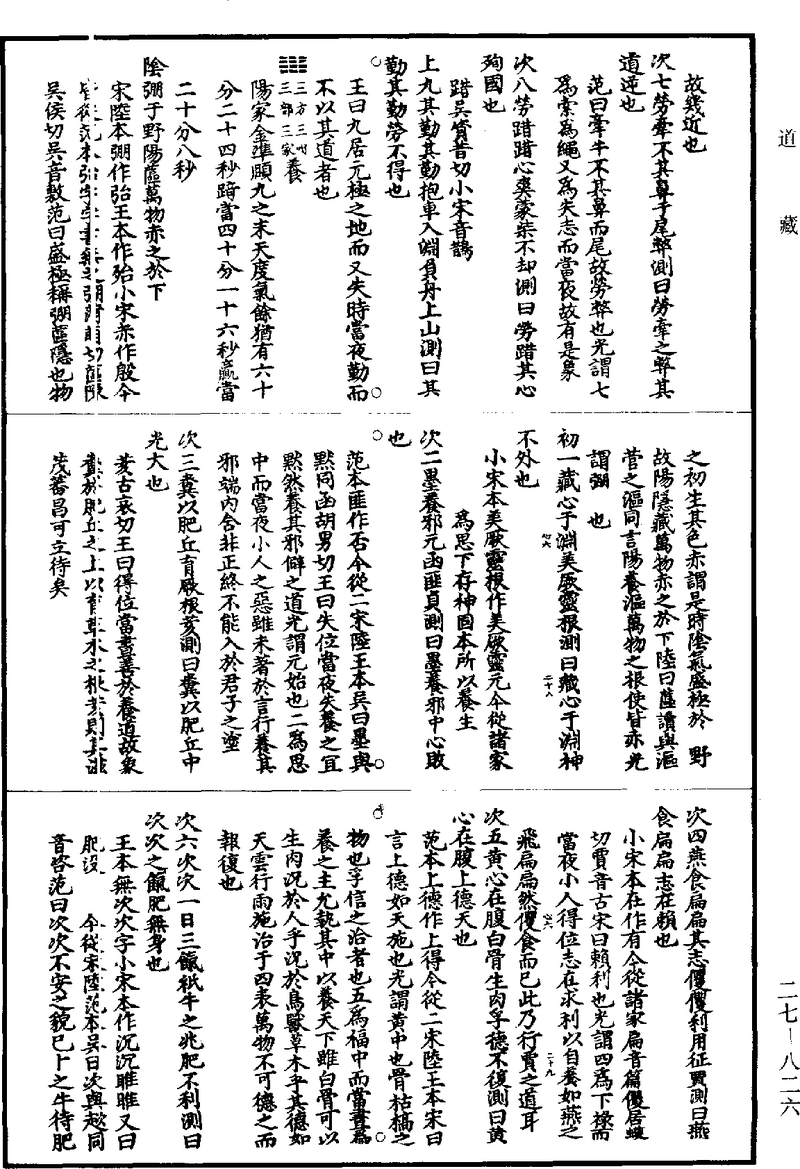 道藏
故幾近也
次七勞牽不其鼻于尾弊測曰勞牽之弊其
道逆也
范曰牽牛不其鼻而尾故勞弊也光謂七
為索為繩又為失志而當夜故有是象
次八勞踖踖心爽蒙柴不却測曰勞踖其心
殉國也
踖吳資昔切小宋音鵲
上九其勤其勤抱車入淵負舟上山測曰其
勤其勤勞不得也
王曰九居亢極之地而又失時當夜勤而
不以其道者也
三方三州三部三家養
陽家金準頤九之末天度氣餘猶有六十
分二十四秒踦當四十分一十六秒贏當
二十分八秒
陰弸于野陽蓲萬物赤之於下
宋陸本弸作弘王本作殆小宋赤作殷今
皆從范本弘字字書無之弸蒲萌切蓲陳
吳侯切吳音敷范曰盛極稱弸蓲隱也物
之初生其色赤謂是時陰氣盛極於野
故陽隱藏萬物赤之於下陸曰蓲讀與漚
菅之漚同言陽養漚萬物之根使皆赤光
謂弸也
初一藏心于淵美厥靈根測曰藏心于淵神
不外也
小宋本美厥靈根作美厥靈元今從諸家
為思下存神固本所以養生
次二墨養邪元函匪貞測曰墨養邪中心敗
也
范本匪作否今從二宋陸王本吳曰墨與
默同函胡男切王曰失位當夜失養之宜
默然養其邪僻之道光謂元始也二為思
中而當夜小人之惡雖未著於言行養其
邪端內含非正終不能入於君子之塗
次三糞以肥丘育厥根荄測曰糞以肥丘中
光大也
荄古哀切王曰得位當晝善於養道故象
糞於肥丘之上以育草木之根荄則其滋
茂蕃昌可立待矣
次四燕食扁扁其志僾僾利用征賈測曰燕
食扁扁志在賴也
小宋本在作有今從諸家扁音篇僾居縛
切賈音古宋曰賴利也光謂四為下祿而
當夜小人得位志在求利以自養如燕之
飛扁扁然僾食而已此乃行賈之道耳
次五黃心在腹白骨生肉孚德不復測曰黃
心在腹上德天也
范本上德作上得今從二宋陸王本宋曰
言上德如天施也光謂黃中也骨枯槁之
物也孚信之洽者也五為福中而當晝為
養之主允執其中以養天下雖白骨可以
生肉況於人乎況於鳥獸草木乎其德如
天雲行雨施洽于四表萬物不可德之而
報復也
次六次次一日三餼祇牛之兆肥不利測曰
次次之餼肥無身也
王本無次次字小宋本作沉沉睢睢又曰
肥沒今從宋陸范本吳曰次與趑同
音咨范曰次次不安之貌巳卜之牛待肥
二七—八二六